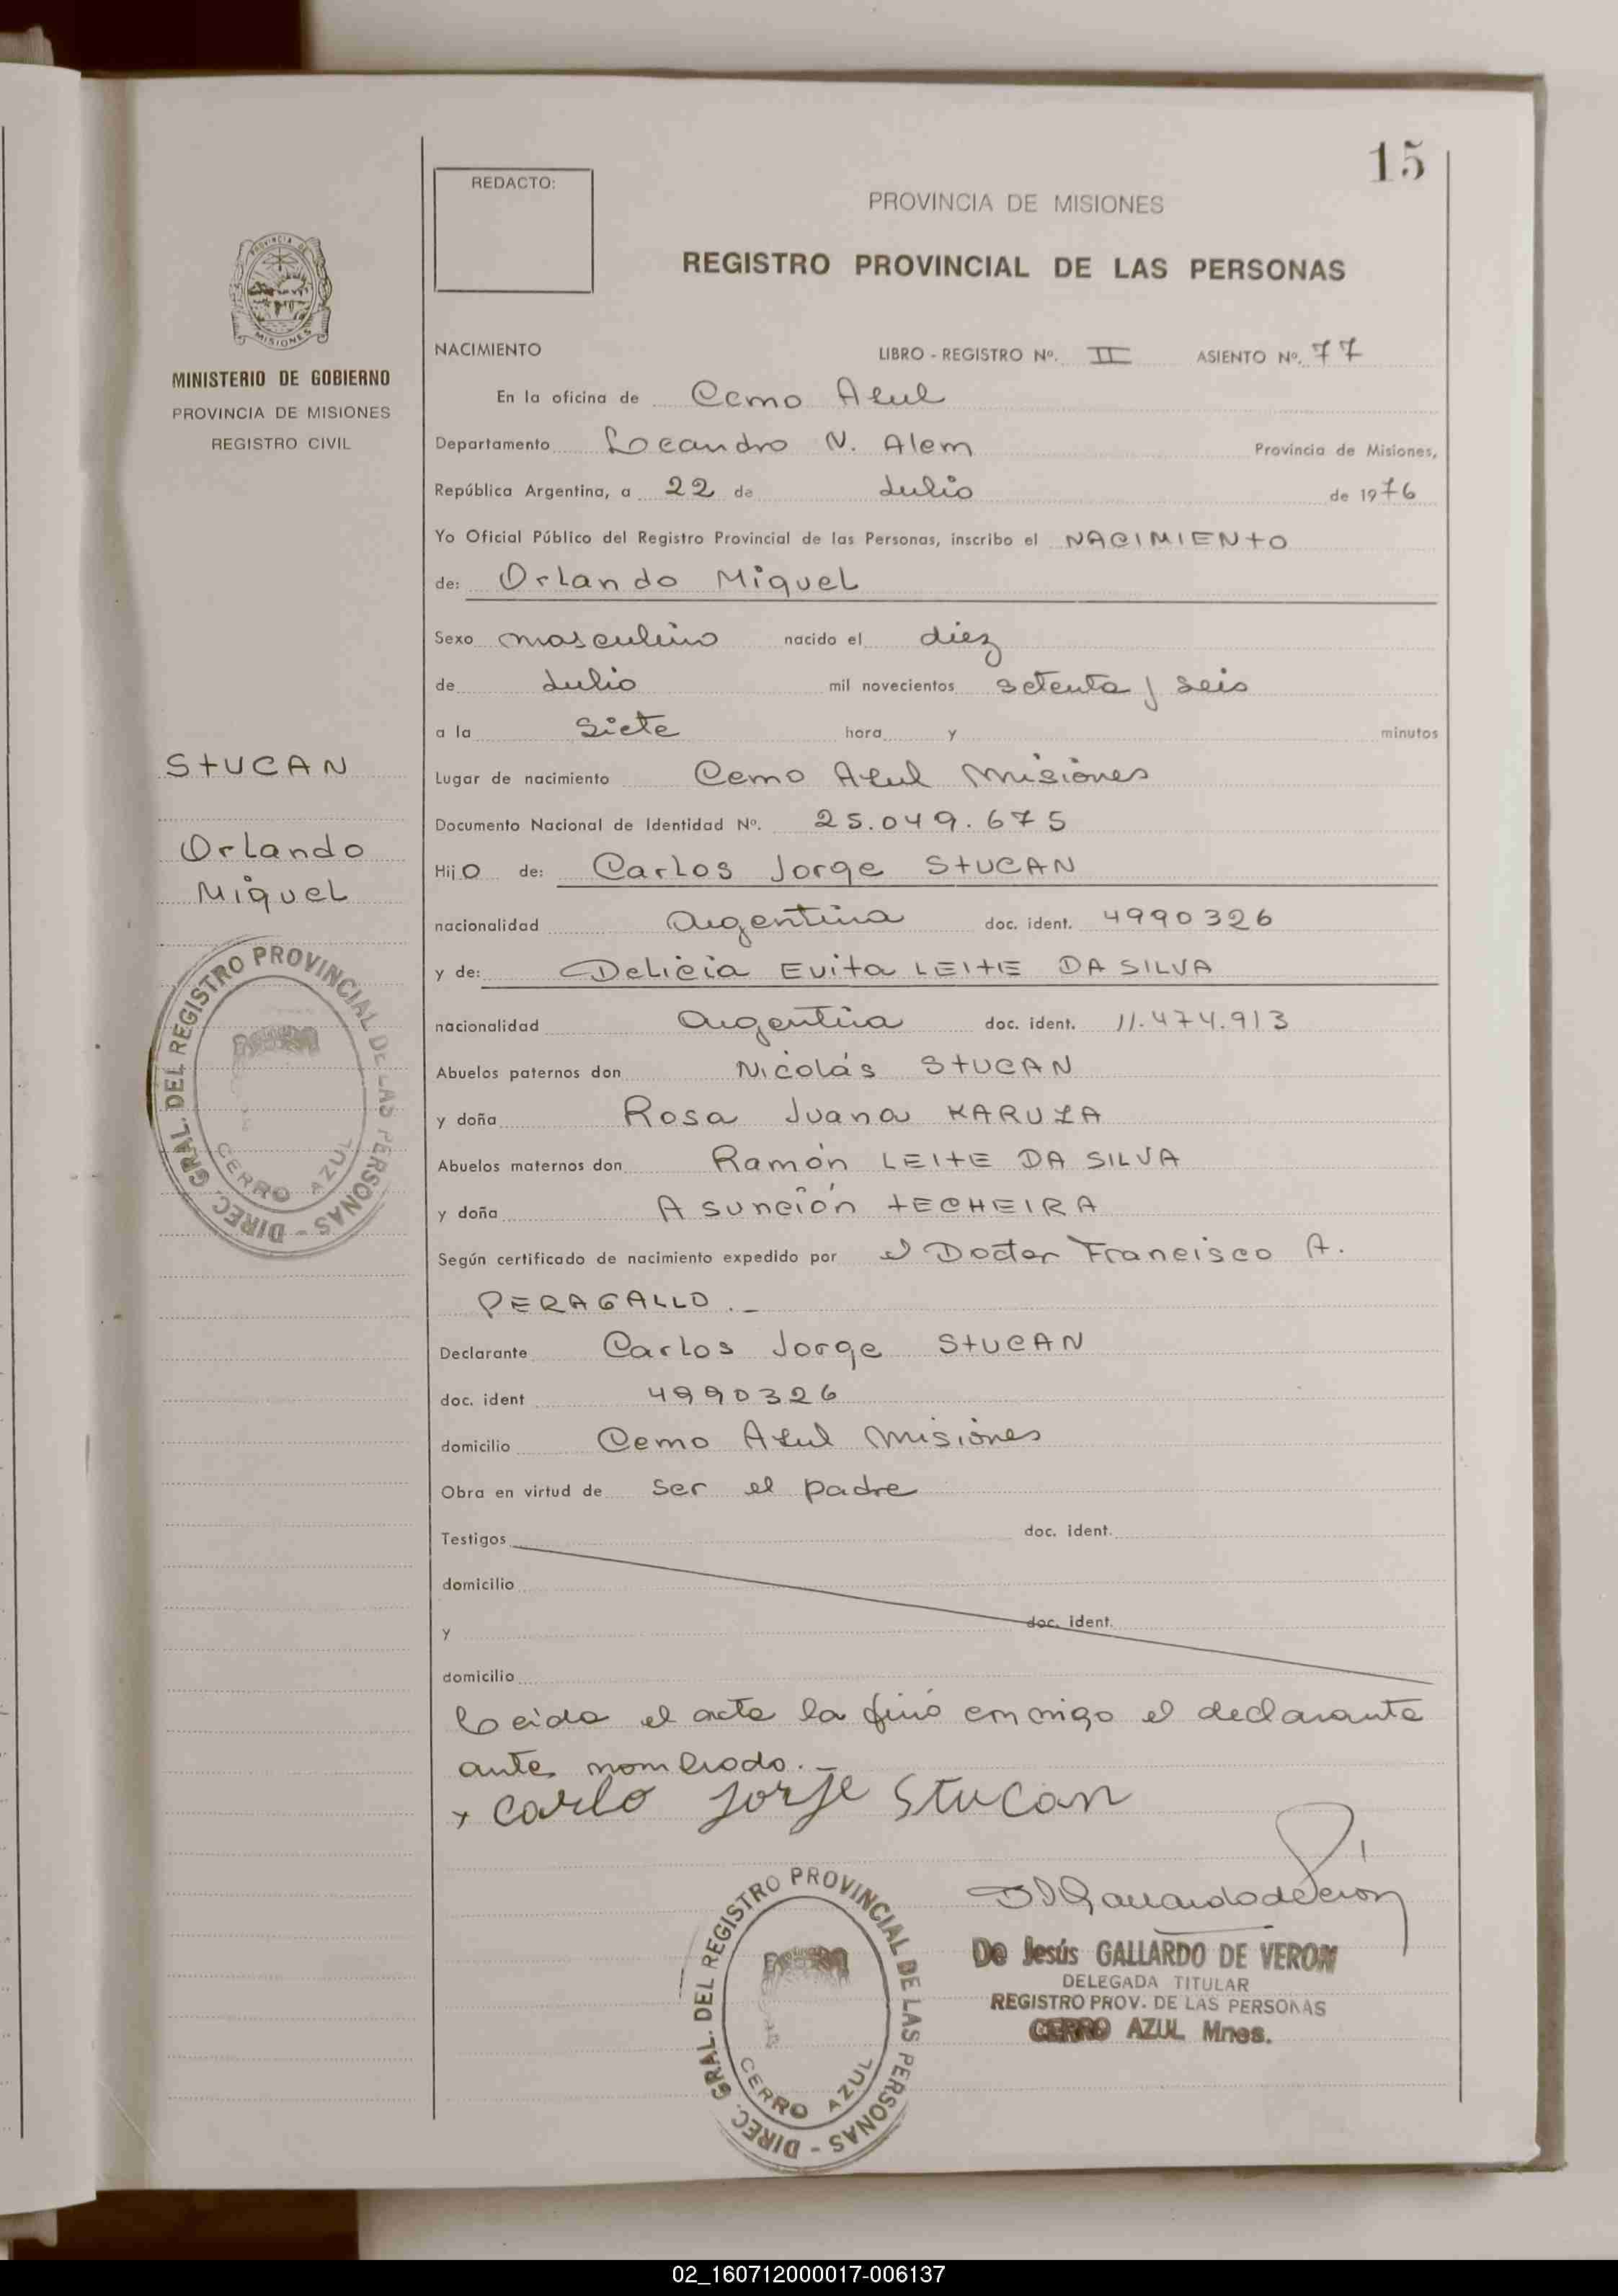 15
REDACTO:
PROVINCIA DE MISIONES
REGISTRO PROVINCIAL DE LAS PERSONAS
PROVINCIA DE
MISIONES
MINISTERIO DE GOBIERNO
PROVINCIA DE MISIONES
REGISTRO CIVIL
NACIMIENTO LIBRO - REGISTRO Nº. II ASIENTO Nº. 77
En la oficina de Cerro Azul
Departamento Leandro N. Alem Provincia de Misiones,
República Argentina, a 22 de Julio de 1976
Yo Oficial Público del Registro Provincial de las Personas, inscribo el NACIMIENTO
de: Orlando Miguel
Sexo masculino nacido el diez
de Julio mil novecientos setenta y seis
a la siete hora y minutos
STUCAN
Lugar de nacimiento Cerro Azul Misiones
Documento Nacional de Identidad Nº. 25.049.675
Orlando
Miguel
Hijo de: Carlos Jorge STUCAN
nacionalidad Argentina doc. ident. 4990326
y de: Delicia Evita LEITE DA SILVA
nacionalidad Argentina doc. ident. 11.474.913
Abuelos paternos don Nicolás STUCAN
y doña Rosa Juana KARUZA
Abuelos maternos don Ramón LEITE DA SILVA
y doña Asunción TECHEIRA
DIREC. GRAL. DEL REGISTRO PROVINCIAL DE LAS PERSONAS -
CERRO AZUL
Según certificado de nacimiento expedido por el Doctor Francisco A.
PERAGALLO.-
Declarante Carlos Jorge STUCAN
doc. ident 4990326
domicilio Cerro Azul Misiones
Obra en virtud de ser el padre
Testigos doc. ident.
domicilio
y doc. ident.
domicilio
Leida el acta la firmó conmigo el declarante
ante nombrado.-
x Carlo Jorje Stucan
De Jesús GALLARDO DE VERON
DELEGADA TITULAR
REGISTRO PROV. DE LAS PERSONAS
CERRO AZUL Mnes.
DIREC. GRAL. DEL REGISTRO PROVINCIAL DE LAS PERSONAS -
CERRO AZUL
02_160712000017-006137